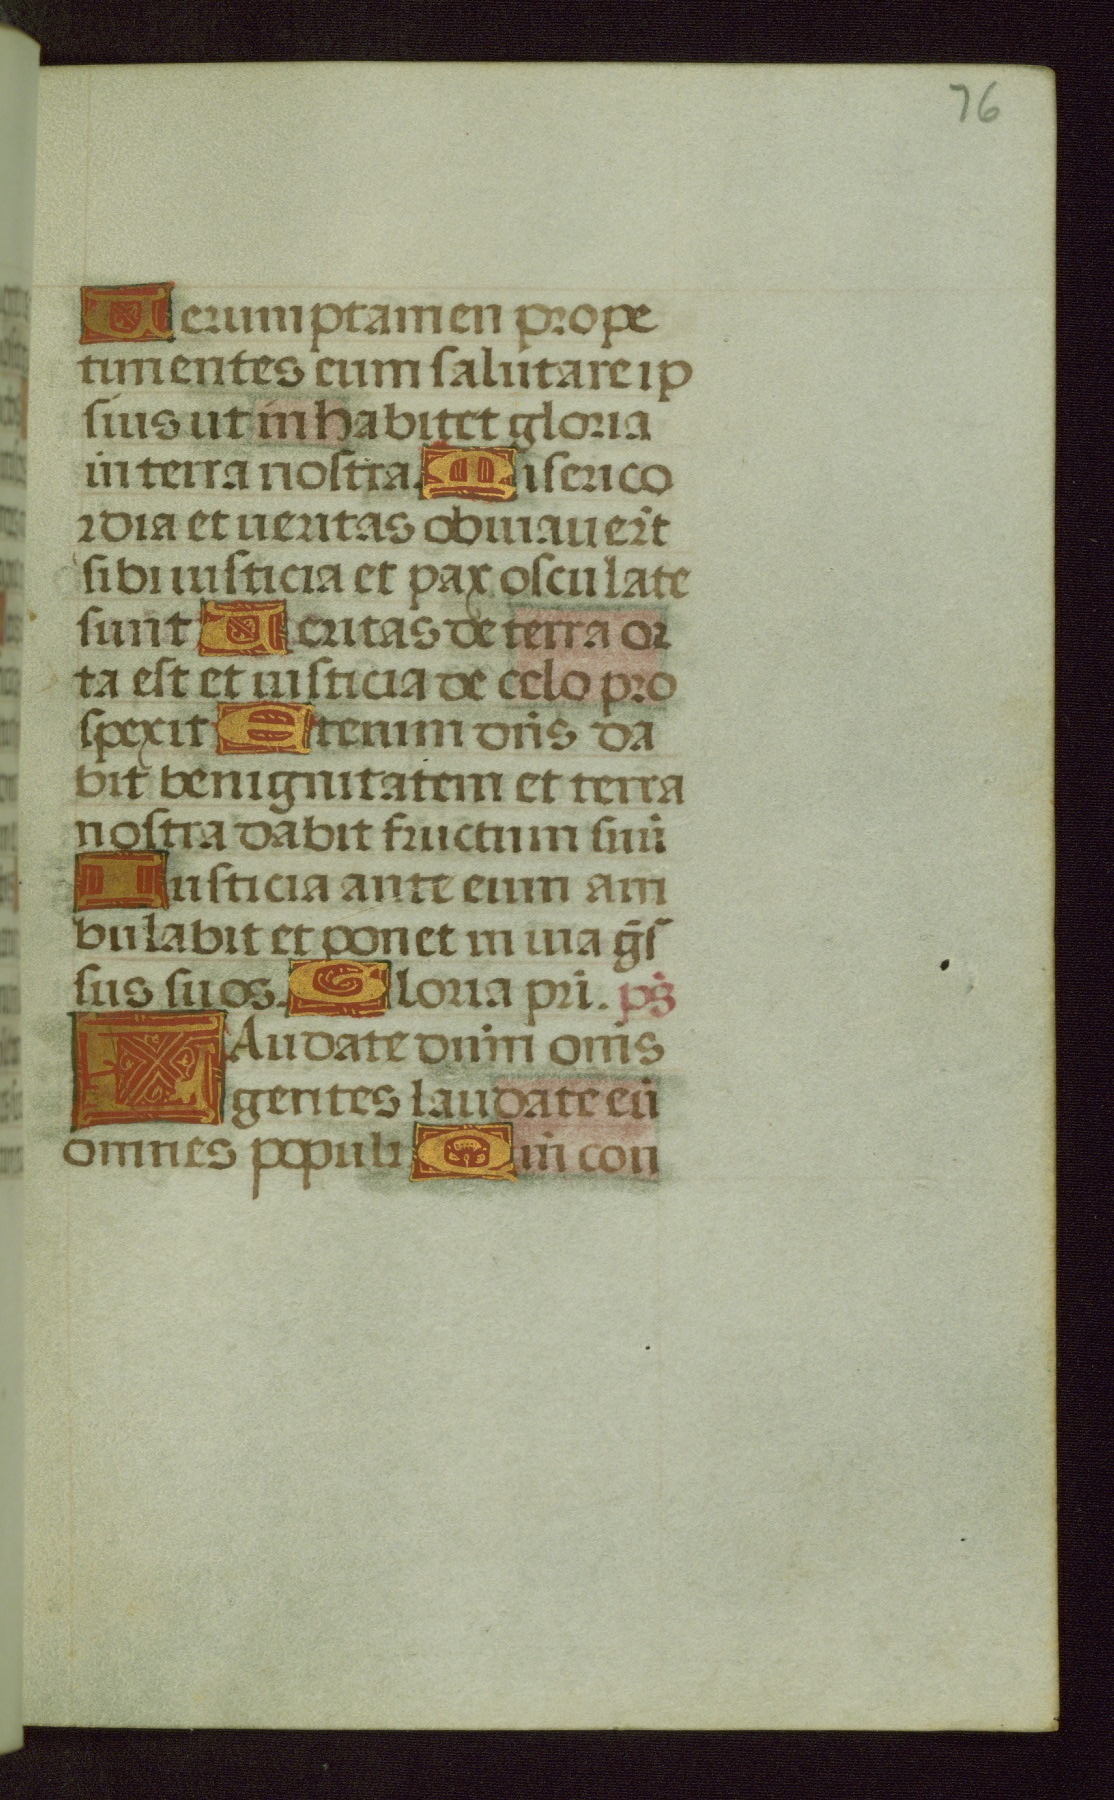 76
Uerumptamen prope
timentes eum salutare ip
sius ut inhabitet gloria
in terra nostra. Miserico
rdia et ueritas obuiauer̃t
sibi iusticia et pax osculate
sunt Ueritas de terra or
ta est et iusticia de celo pro
spexit Etenim dñs da
bit benignitatem et terra
nostra dabit fructum suũ
Iusticia ante eum am
bulabit et ponet in uia g̃s
sus suos. Gloria pr̃i. ps̃
LAudate dñm om̃s
gentes laudate eũ
omnes populi Qm̃ con